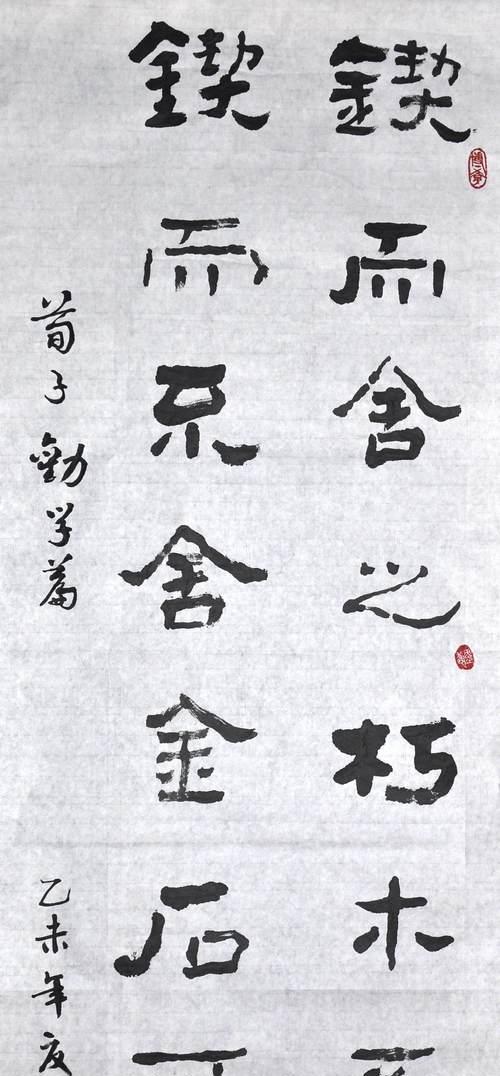 鍥而舍之朽木
鍥而不舍金石
荀子勸学篇
乙未年夏